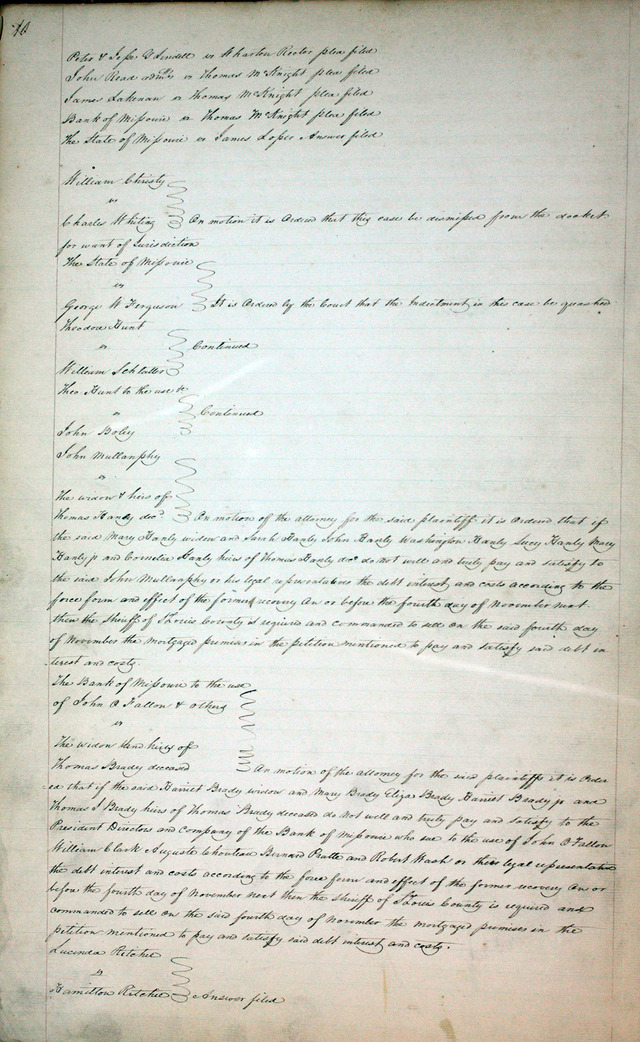 Peter & Jesse G Lindell vs Wharton Rector plea filed
John Read admr vs Thomas McKnight plea filed
James Lakenan vs Thomas McKnight plea filed
Bank of Missouri vs Thomas McKnight plea filed
The State of Missouri vs James Loper Answer filed
William Christy
vs
Charles Whiting On motion it is Ordered that they case be dismissed from the docket
for want of Jurisdiction
The State of Missouri
vs
George W Ferguson It is Ordered by the Court that the Indictment in this case be quashed
Theodore Hunt
vs Continued
William Schlatter
Theo. Hunt to the use &c
vs Continued
John Boley
John Mullanphy
vs
The widow & heirs of
Thomas Hanly decd. On motion of the attorney for the said plaintiff it is Ordered that if
the said Mary Hanly widow and Sarah Hanly John Hanly Washington Hanly Lucy Hanly Mary
Hanly jr and Cornelia Hanly heirs of Thomas Hanly decd do not well and truly pay and satisfy to
the said John Mullanphy or his legal representatives the debt interest and costs according to the
force form and effect of the former recovery On or before the fourth day of November next
then the Sheriff of St Louis County is required and commanded to sell on the said fourth day
of November the mortgaged premises in the petition mentioned to pay and satisfy said debt in
terest and costs.
The Bank of Missouri to the use
of John O Fallon & others
vs
The widow and heirs of
Thomas Brady deceased On motion of the attorney for the said plaintiffs it is Order
ed that if the said Harriet Brady widow and Mary Brady Eliza Brady Harriet Brady jr and
Thomas J Brady heirs of Thomas Brady deceased do not well and truly pay and satisfy to the
President Directors and Company of the Bank of Missouri who sue to the use of John O Fallon
William Clark Auguste Chouteau Bernard Pratte and Robert Wash or their legal representatives
the debt interest and costs according to the force form and effect of the former recovery On or
before the fourth day of November next then the Sheriff of St Louis County is required and
commanded to sell on the said fourth day of November the mortgaged premises in the
petition mentioned to pay and satisfy said debt interest and costs.
Lucinda Ritchie
vs
Hamilton Ritchie Answer filed